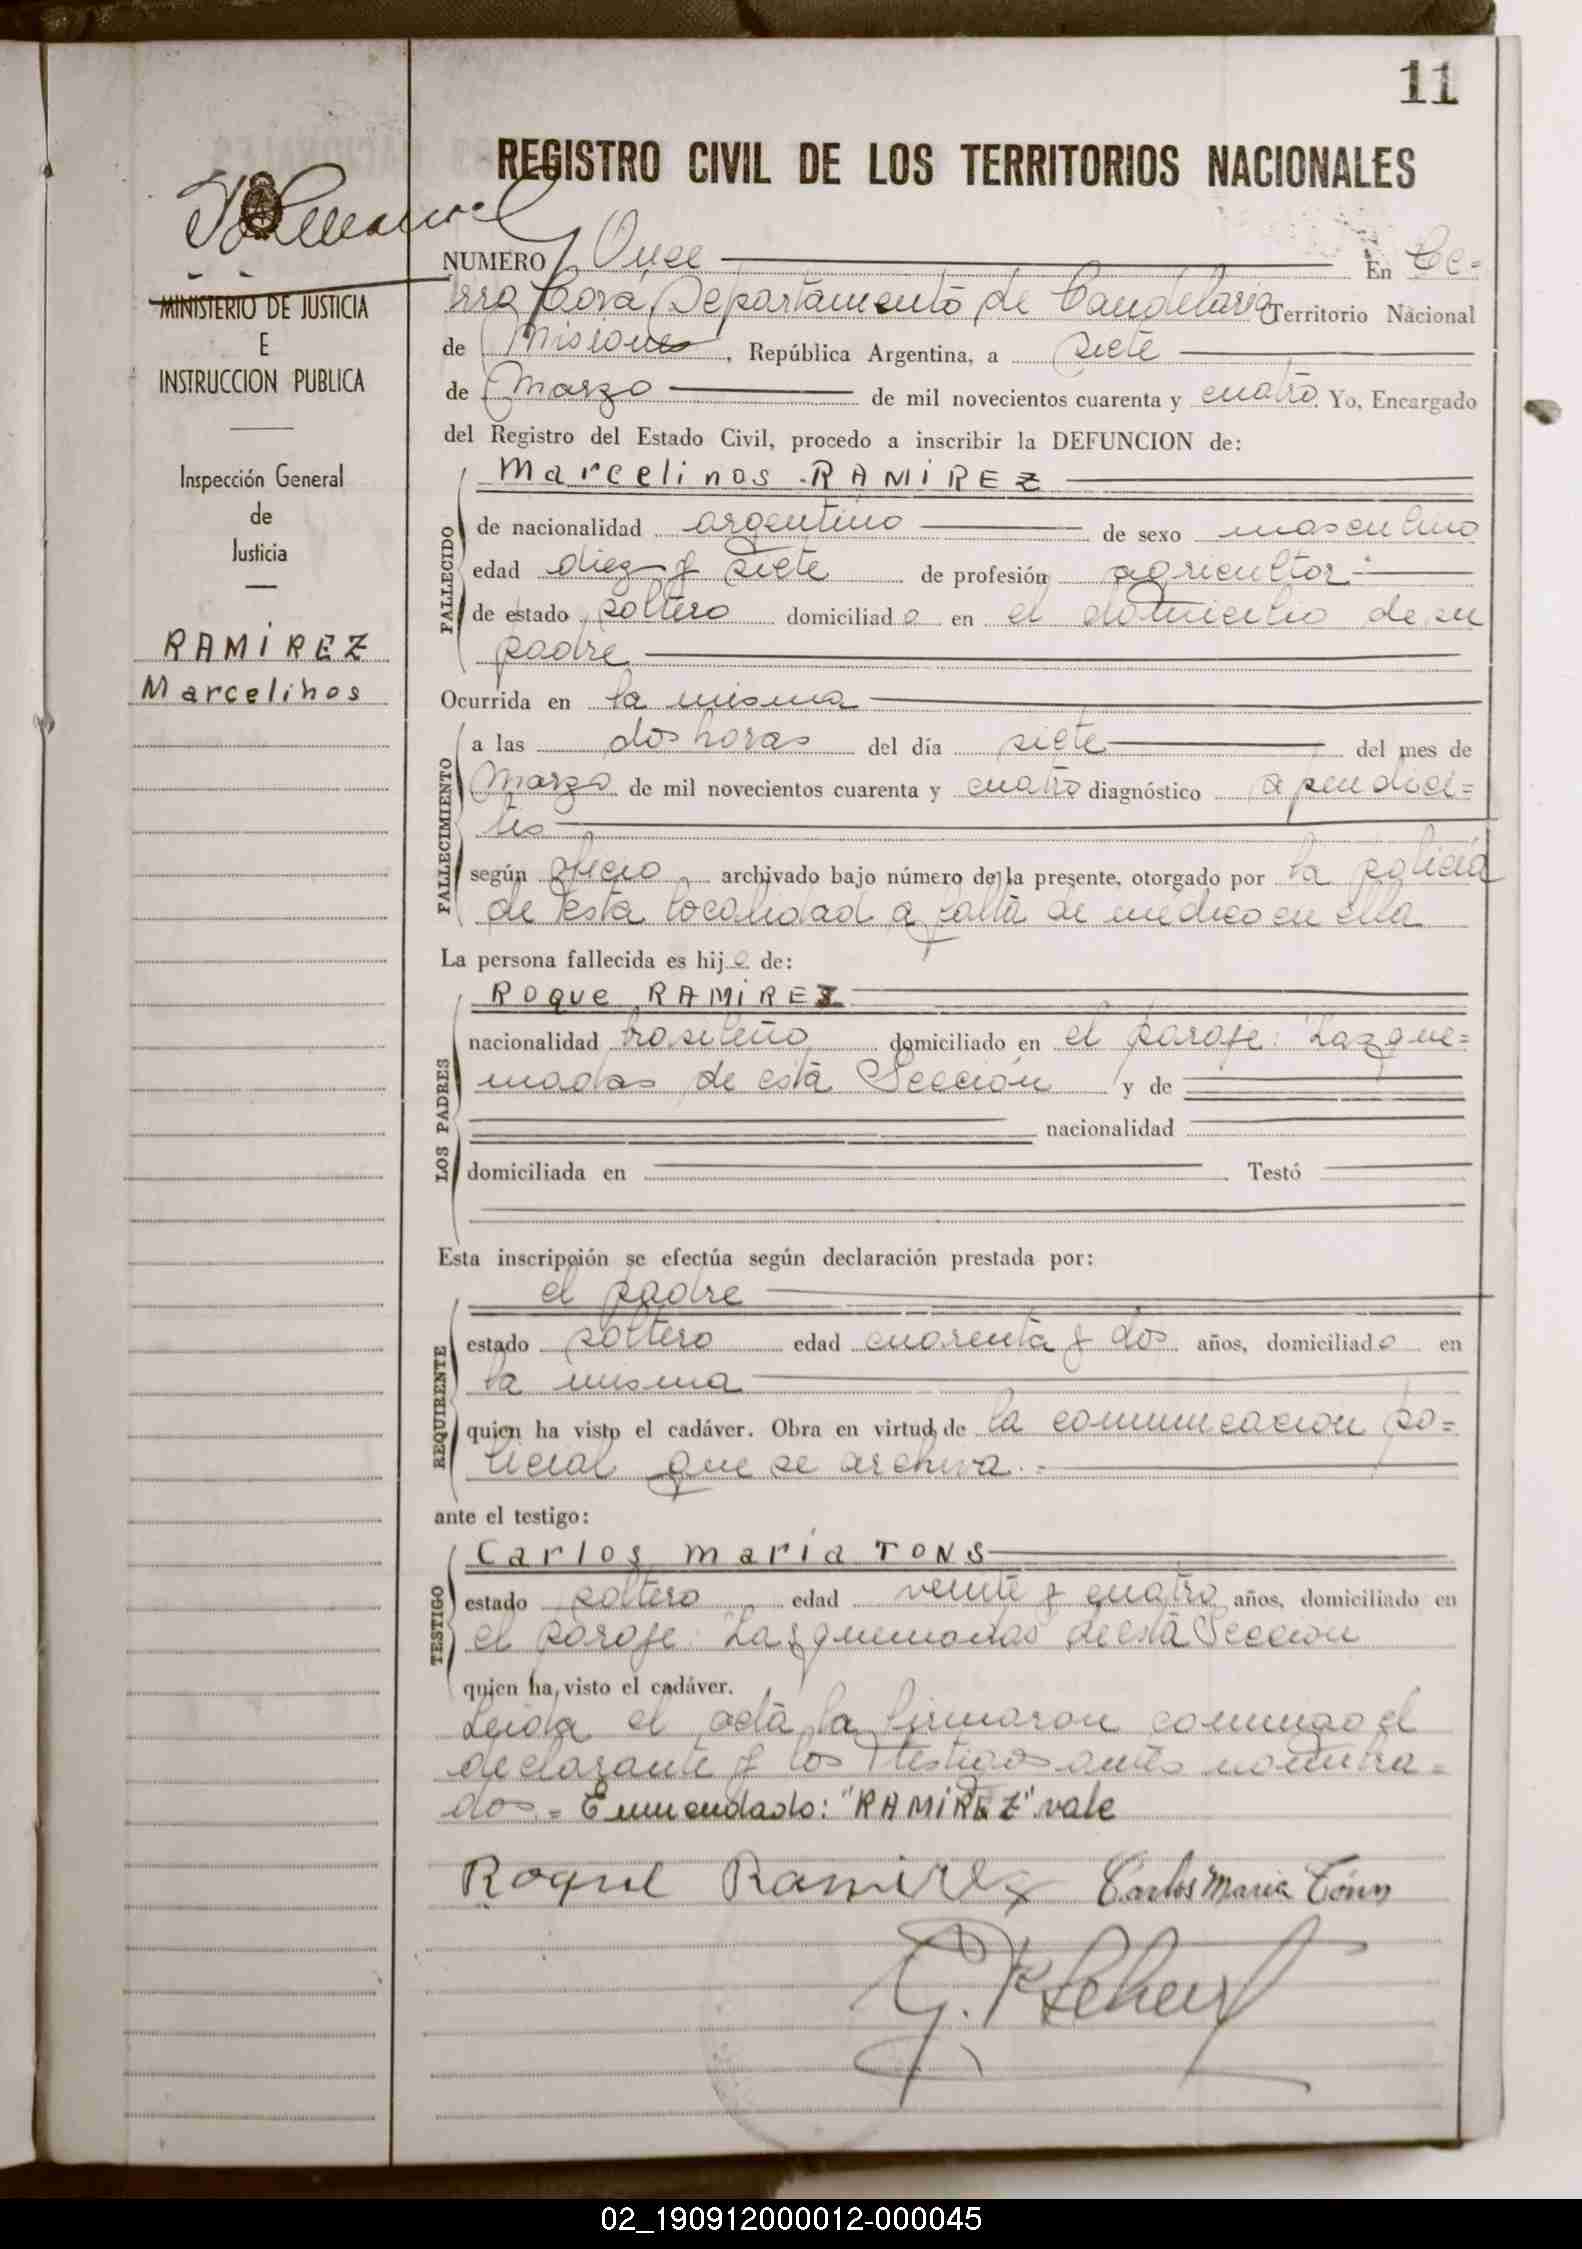 11
REGISTRO CIVIL DE LOS TERRITORIOS NACIONALES
NUMERO Once En Ce=
rro Corá, Departamento de Candelaria Territorio Nacional
de Misiones, República Argentina, a siete
de Marzo de mil novecientos cuarenta y cuatro. Yo, Encargado
del Registro del Estado Civil, procedo a inscribir la DEFUNCION de:
MINISTERIO DE JUSTICIA
E
INSTRUCCION PUBLICA
Inspección General
de
Justicia
RAMIREZ
Marcelinos
FALLECIDO
Marcelinos RAMIREZ
de nacionalidad argentino de sexo masculino
edad diez y siete de profesión agricultor
de estado soltero domiciliado en el domicilio de su
padre
Ocurrida en la misma
FALLECIMIENTO
a las dos horas del día siete del mes de
Marzo de mil novecientos cuarenta y cuatro diagnóstico apendici=
tis
según oficio archivado bajo número de la presente, otorgado por la policía
de esta localidad a falta de médico en ella
La persona fallecida es hijo de:
LOS PADRES
Roque RAMIREZ
nacionalidad brasileño domiciliado en el paraje: Las que=
madas de está Sección y de
nacionalidad
domiciliada en Testó
Esta inscripción se efectúa según declaración prestada por:
REQUIRENTE
el padre
estado soltero edad cuarenta y dos años, domiciliado en
la misma
quien ha visto el cadáver. Obra en virtud de la comunicacion po=
licial que se archiva.=
ante el testigo:
TESTIGO
Carlos maria TONS
estado soltero edad veinte y cuatro años, domiciliado en
el paraje: Las quemadas de está Seccion
quien ha visto el cadáver.
Leida el acta, la firmaron conmigo el
declarante y los testigos antes nombra=
dos.= Enmendado: "RAMIREZ" vale
Roque Ramirez Carlos Maria Tóns
02_190912000012-000045